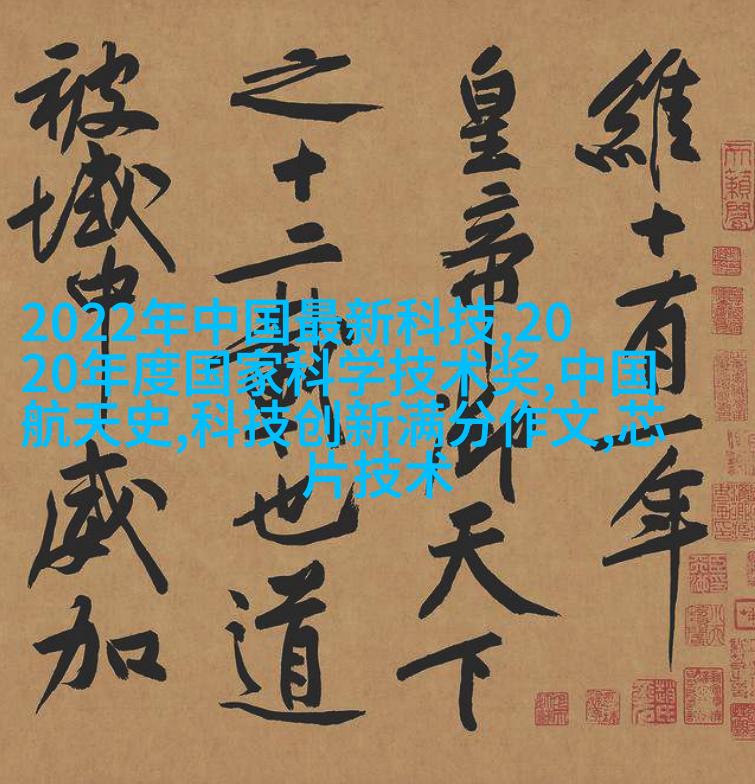 維十有一年
皇帝御天下
之十二載也道
被域中威加
2022年中国最新科技,20
20年度国家科学技术奖,中国
航天史,科技创新满分作文,芯
片技术